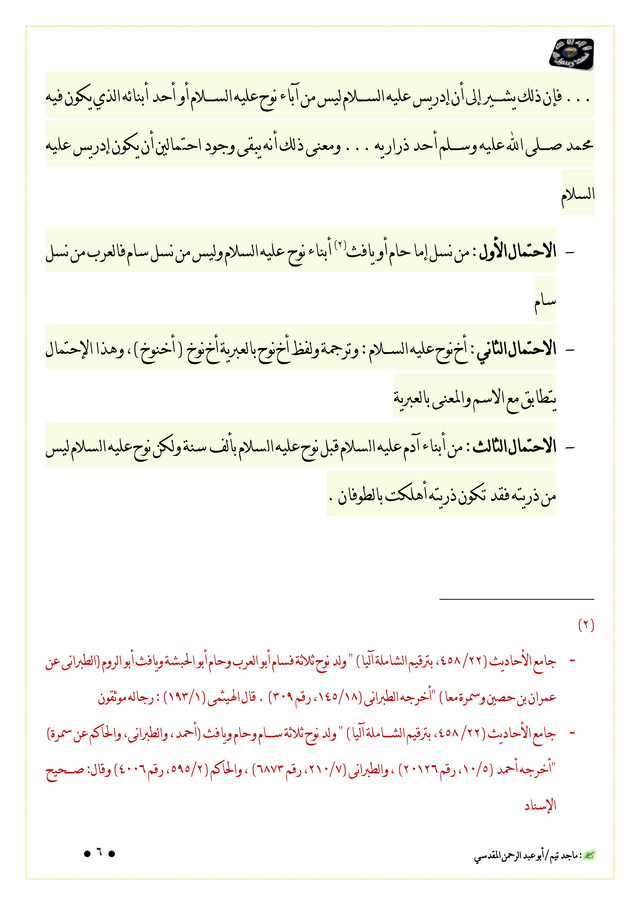 ... فإن ذلك يشير إلى أن إدريس عليه السلام ليس من آباء نوح عليه السلام أو أحد أبنائه الذي يكون فيه
محمد صلى الله عليه وسلم أحد ذراريه ... ومعنى ذلك أنه يبقى وجود احتمالين أن يكون إدريس عليه
السلام
- الاحتمال الأول : من نسل إما حام أو يافث (٢) أبناء نوح عليه السلام وليس من نسل سام فالعرب من نسل
سام
- الاحتمال الثاني : أخ نوح عليه السلام : وترجمة ولفظ أخ نوح بالعبرية أخ نوخ ( أخنوخ ) ، وهذا الإحتمال
يتطابق مع الاسم والمعنى بالعبرية
- الاحتمال الثالث : من أبناء آدم عليه السلام قبل نوح عليه السلام بألف سنة ولكن نوح عليه السلام ليس
من ذريته فقد تكون ذريته أهلكت بالطوفان .
(٢)
- جامع الأحاديث (٢٢/ ٤٥٨، بترقيم الشاملة آليا ) " ولد نوح ثلاثة فسام أبو العرب وحام أبو الحبشة ويافث أبو الروم (الطبرانى عن
عمران بن حصين وسمرة معا ) "أخرجه الطبرانى (١٨/ ١٤٥، رقم ٣٠٩) . قال الهيثمى (١/ ١٩٣) : رجاله موثقون
- جامع الأحاديث (٢٢/ ٤٥٨، بترقيم الشاملة آليا ) " ولد نوح ثلاثة سام وحام ويافث (أحمد ، والطبرانى، والحاكم عن سمرة)
"أخرجه أحمد (٥/ ١٠، رقم ٢٠١٢٦) ، والطبرانى (٧/ ٢١٠، رقم ٦٨٧٣) ، والحاكم (٢/ ٥٩٥، رقم ٤٠٠٦) وقال: صحيح
الإسناد
: ماجد تيم / أبو عبد الرحمن المقدسي
● ٦ ●